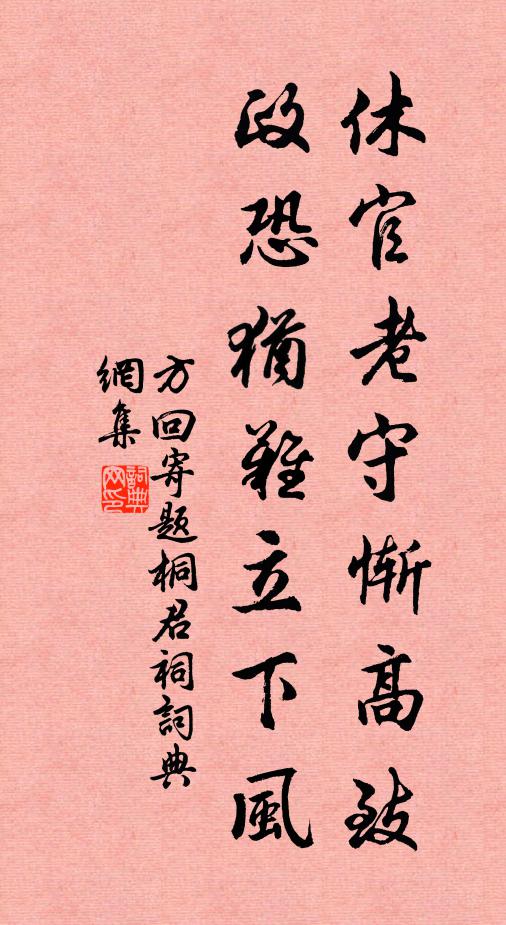 休官老守慚高致
政恐猶難立下風
方回寄題桐君祠詞典
網集
詞典
網印